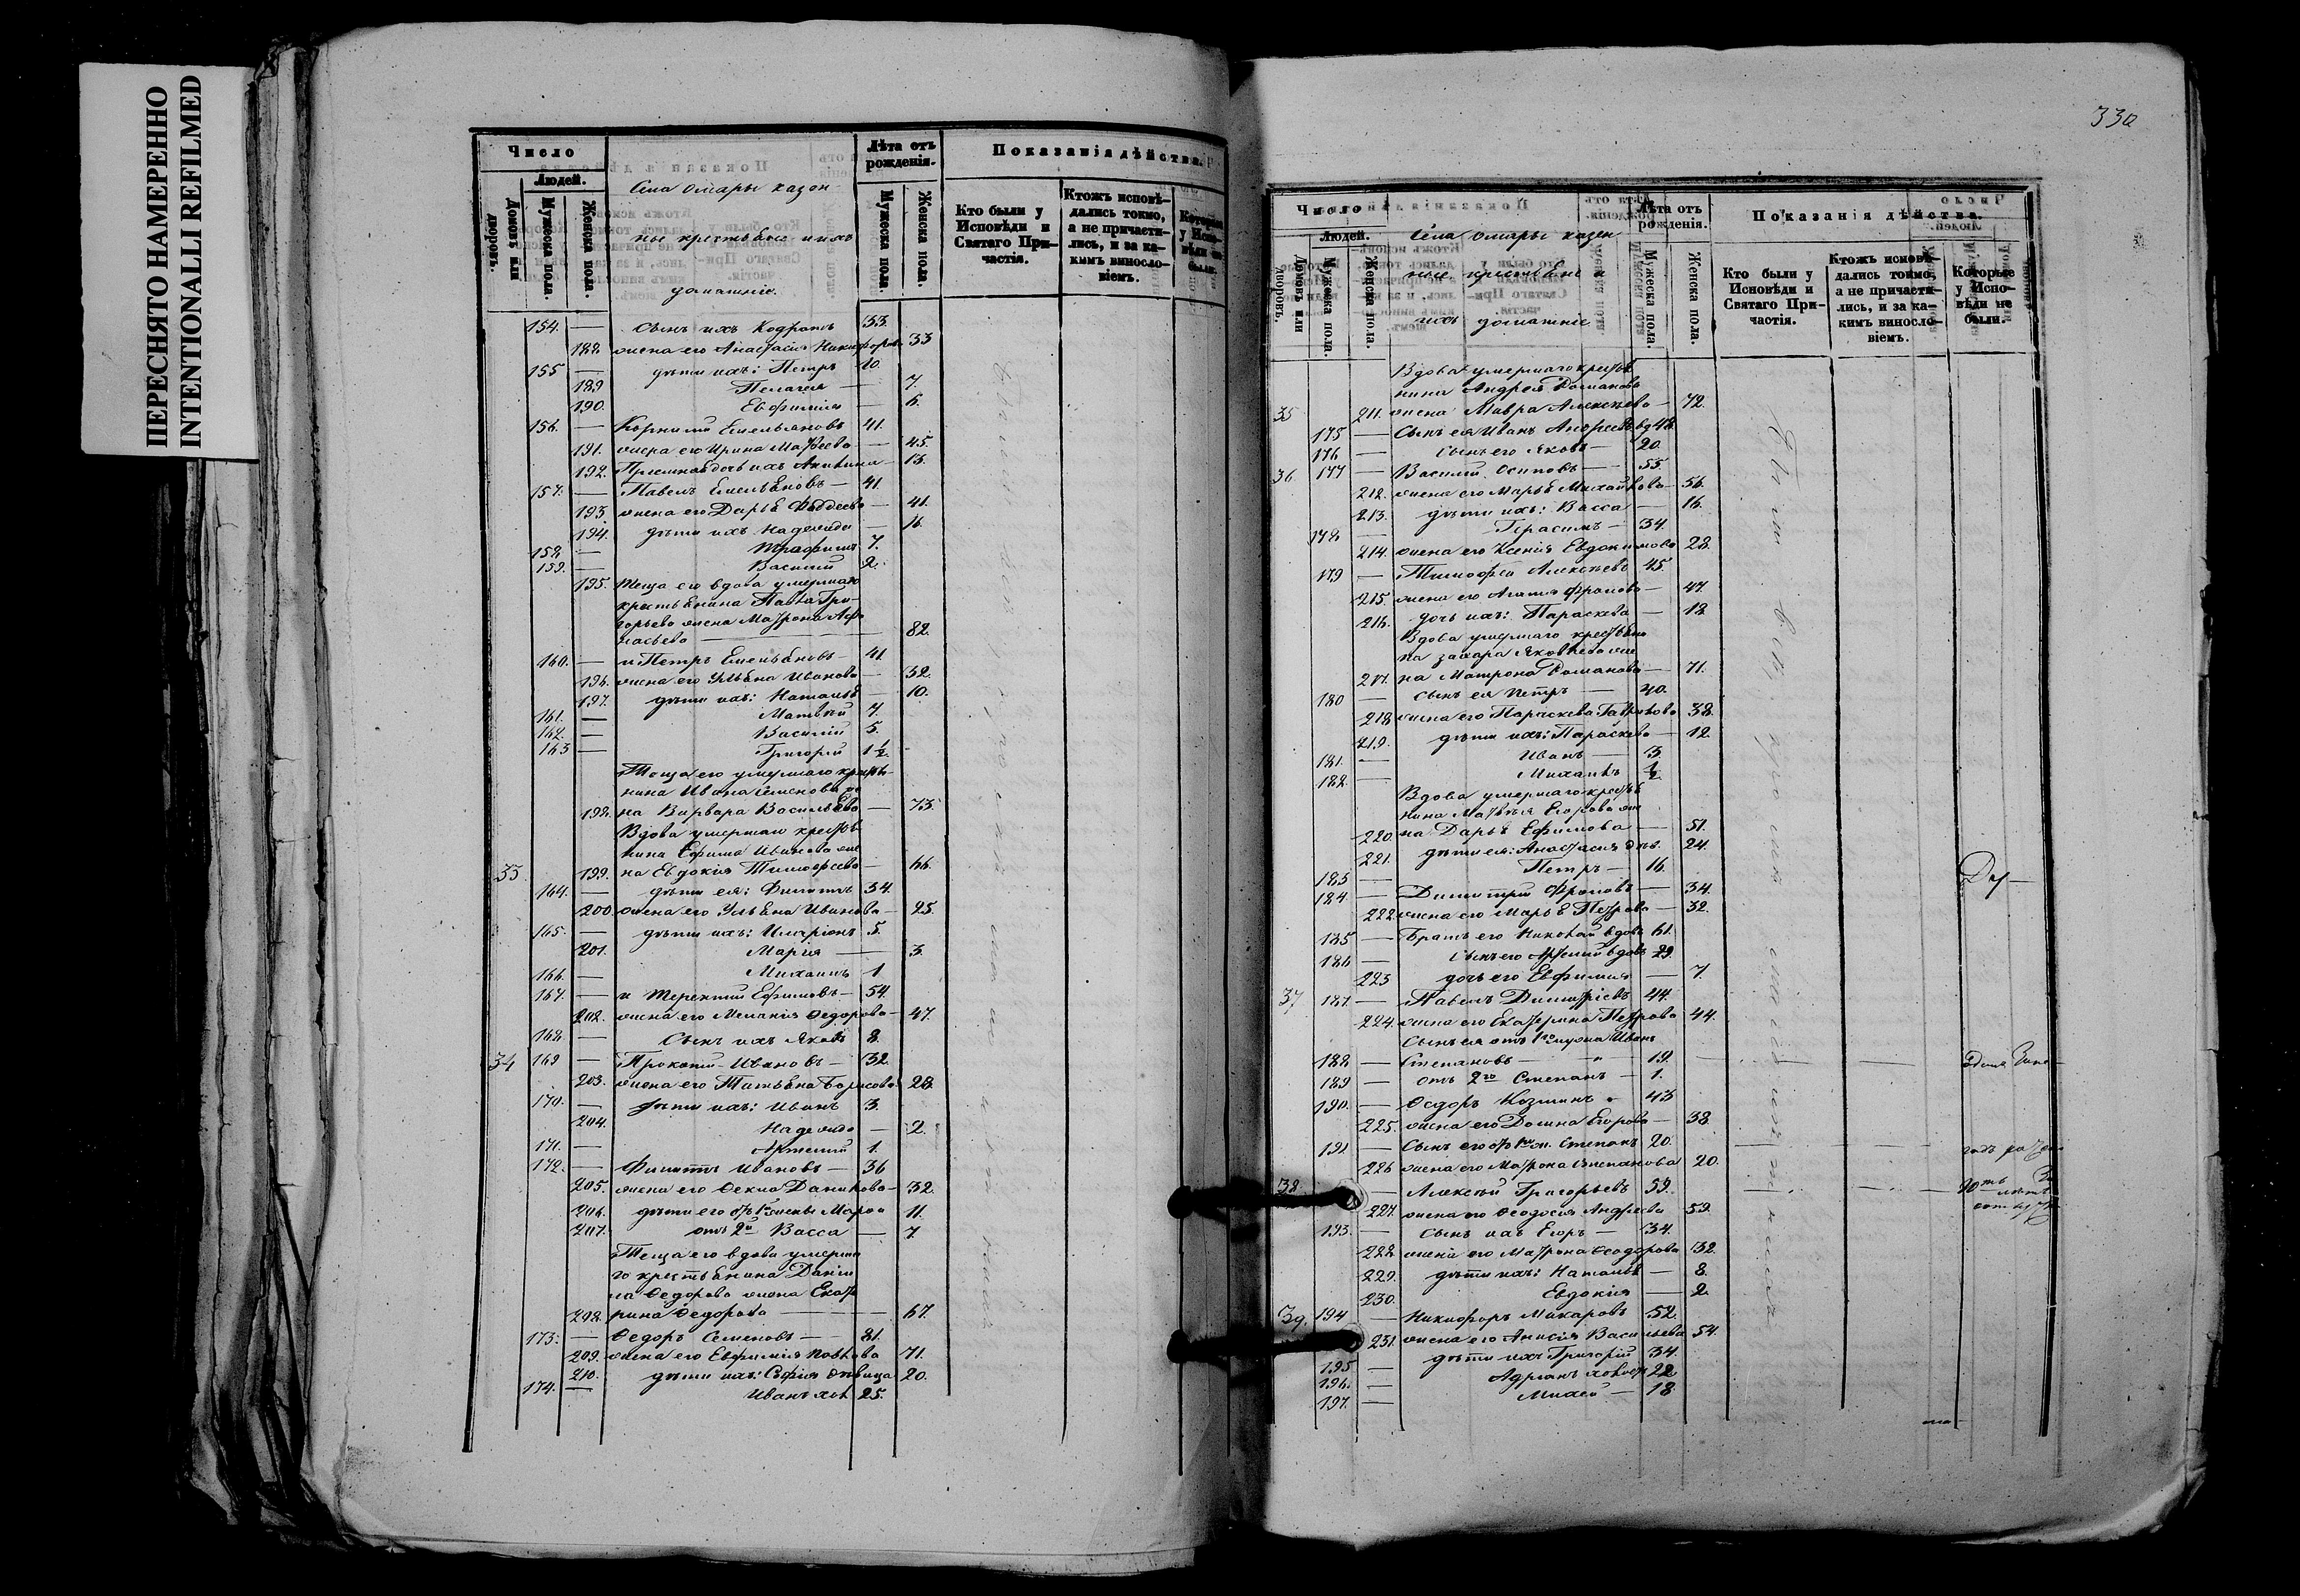 ПЕРЕСНЯТО НАМЕРЕННО
INTENTIONALLI REFILMED
Число
Людей.
Домовъ или дворовъ.
Мужеска пола.
Женска пола.
Села Омары казен
ные крестьяне и ихъ
домашніе.
Лѣта отъ рожденія.
Мужеска пола.
Женска пола.
Показанія дѣйства.
Кто были у Исповѣди и Святаго Причастія.
Ктожъ исповѣдались токмо, а не причастились, и за какимъ винословіемъ.
Которые у Исповѣди не были.
154. — сынъ ихъ Кодратъ 33.
188 жена его Анастасія Никифорова 33
155 — дѣти ихъ: Петръ 10.
189 Пелагея — 7.
190. Евфимія — 6.
156. — Корнилий Емельяновъ 41.
191. жена его Ирина Матвеева — 45.
192. дочь ихъ Акилина — 13.
157. — Павелъ Емельяновъ — 41.
193 жена его Дарья Фаддеева — 41.
194. дѣти ихъ Надежда — 16.
158 — Трофимъ 7.
159. — Василий 2.
195. Теща его вдова умершаго
крестьянина Павла Гри-
горьева жена Матрона Афа
насьева — 82.
160. — и Петръ Емельяновъ — 41.
196. жена его Ульяна Иванова — 32.
197. дѣти ихъ: Наталья — 10.
161. — Матвѣй 7.
162. — Василий 5.
163 — Григорий 1½.
Теща его умершаго кресть-
нина Ивана Семенова же
198. на Варвара Васильева — 73.
Вдова умершаго крестья
нина Ефима Иванова же
33 199. на Евдокія Тимофеева — 66.
164. — дѣти ея: Филиппъ 34.
200. жена его Ульяна Иванова — 25.
165. — дѣти ихъ: Иларіонъ 5.
201. Марія — 3.
166. — Михаилъ 1
167. — и Терентий Ефимовъ — 54.
202. жена его Меланія Федорова — 47.
168. — Сынъ ихъ Яковъ 8.
34 169 — Прокопий Ивановъ — 32.
203. жена его Татьяна Борисова 28.
170. — дѣти ихъ: Иванъ 3.
204. Надежда — 2.
171. — Артемий 1.
172. — Филиппъ Ивановъ — 36
205. жена его Фекла Данилова — 32.
206. дѣти его отъ 1й жены Марфа 11.
207. отъ 2й Васса — 7
Теща его вдова умерша
го крестьянина Дани
ла Федорова жена Екате
208. рина Федорова — 67.
173. — Федоръ Семеновъ — 81.
209. жена его Евфимія Павлова 71.
210. дѣти ихъ: Софія дѣвица 20.
174. — Иванъ хол 25.
330
Число
Людей.
Домовъ или дворовъ.
Мужеска пола.
Женска пола.
Села Омары казен
ные крестьяне и
ихъ домашніе
Лѣта отъ рожденія.
Мужеска пола.
Женска пола.
Показанія дѣйства.
Кто были у Исповѣди и Святаго Причастія.
Ктожъ исповѣдались токмо, а не причастились, и за какимъ винословіемъ.
Которые у Исповѣди не были.
Вдова умершаго кресть
нина Андрея Романова
35 211. жена Мавра Алексѣева — 72.
175 — Сынъ ея Иванъ Андреевъ вд 48
176 — Сынъ его Яковъ — 20.
36 177 — Василий Осиповъ — 55
212. жена его Марья Михайлова — 56.
213. дѣти ихъ: Васса — 16.
178 — Герасимъ — 34.
214 жена его Ксенія Евдокимова 28.
179 — Тимофей Алексѣевъ 45.
215. жена его Агапія Фролова — 47.
216. дочь ихъ: Параскева — 18
Вдова умершаго крестьяни
на Захара Яковлева же
217. на Матрона Романова — 71.
180 — сынъ ея Петръ — 40.
218 жена его Параскева Гаврилова 38.
219. дѣти ихъ: Параскева — 12
181. — Иванъ — 3.
182. — Михаилъ ½
Вдова умершаго кресть
нина Матвѣя Егорова же
220. на Дарья Ефимова — 51.
221. дѣти ея: Анастасія дѣв. 24.
183 — Петръ — 16.
184 — Димитрий Фроловъ — 34.
222. жена его Марья Петрова — 32.
185 — Братъ его Николай вдовъ 61.
186 — Сынъ его Артемий вдовъ 29.
223 дочь его Евфимія — 7.
37 187. — Павелъ Димитріевъ 44.
224. жена его Екатерина Петрова 44.
Сынъ ея отъ 1го мужа Иванъ
188 — Степановъ — 19.
189 — отъ 2го Степанъ — 1.
190. — Федоръ Козминъ 43
225. жена его Домна Егорова — 38.
191 — Сынъ его отъ 1й ж. Степанъ 20.
226 жена его Матрона Степанова 20.
38 — Алексѣй Григорьевъ 59.
227. жена его Феодосія Андреева 59.
193. — Сынъ ихъ Егоръ — 34.
228. жена его Матрона Феодорова 32.
229. дѣти ихъ: Наталья — 8.
230. Евдокія — 2.
39. 194 — Никифоръ Макаровъ 52.
231. жена его Анисія Васильева 54.
дѣти ихъ Григорий 34.
195 — Адріанъ холост 22
196. — Михей — 18
197. —